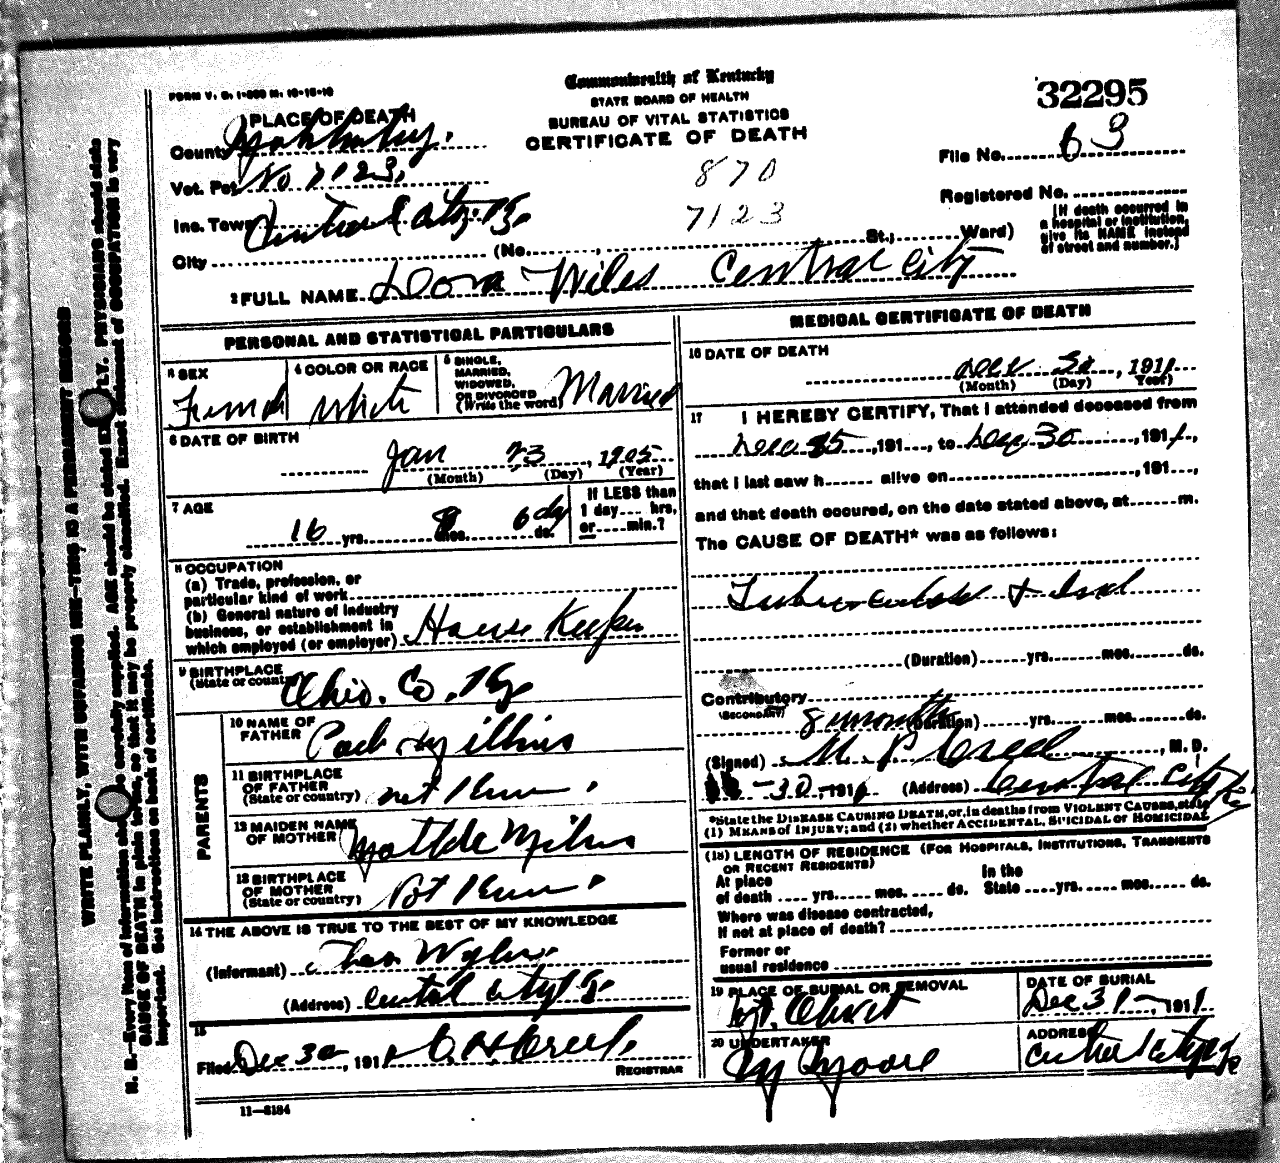 FORM V. S. 1-500 M. 10-15-10
Commonwealth of Kentucky
STATE BOARD OF HEALTH
BUREAU OF VITAL STATISTICS
CERTIFICATE OF DEATH
32295
1 PLACE OF DEATH
County
Vot. Pct. No 7123.
Inc. Town Central City. Ky.
City (No. , St.; Ward)
870
7123
File No. 63
Registered No.
[If death occurred in a hospital or institution, give its NAME instead of street and number.]
2 FULL NAME Dora Wiles Central City
PERSONAL AND STATISTICAL PARTICULARS
3 SEX
Female
4 COLOR OR RACE
White
5 SINGLE, MARRIED, WIDOWED, OR DIVORCED (Write the word)
Married
6 DATE OF BIRTH
Jan 23, 1905
(Month) (Day) (Year)
7 AGE
16 yrs. 8 mos. 6 dy ds.
If LESS than 1 day.... hrs, or.....min.?
8 OCCUPATION
(a) Trade, profession, or
particular kind of work
(b) General nature of industry
business, or establishment in
which employed (or employer) House Keeper
9 BIRTHPLACE
(State or country) Ohio. Co. Ky.
PARENTS
10 NAME OF FATHER
11 BIRTHPLACE OF FATHER (State or country) not Known.
12 MAIDEN NAME OF MOTHER
13 BIRTHPLACE OF MOTHER (State or country) Not Known.
14 THE ABOVE IS TRUE TO THE BEST OF MY KNOWLEDGE
(Informant)
(Address) Central City Ky
15
Filed Dec 30, 191
REGISTRAR
11—5184
MEDICAL CERTIFICATE OF DEATH
16 DATE OF DEATH
Dec 30, 1911
(Month) (Day) Year)
17 I HEREBY CERTIFY, That I attended deceased from
, 191...., to Dec 30, 1911,
that I last saw h alive on , 191....,
and that death occured, on the date stated above, at m.
The CAUSE OF DEATH* was as follows:
(Duration) yrs. mos. ds.
Contributory
(SECONDARY) 8 months (Duration) yrs. mos. ds.
(Signed) , M. D.
-30, 191 (Address) Central City Ky
*State the DISEASE CAUSING DEATH, or, in deaths from VIOLENT CAUSES, state
(1) MEANS of INJURY; and (2) whether ACCIDENTAL, SUICIDAL or HOMICIDAL
(18) LENGTH OF RESIDENCE (FOR HOSPITALS, INSTITUTIONS, TRANSIENTS
OR RECENT RESIDENTS)
At place of death .... yrs. mos. ds. In the State ....yrs. mos. ds.
Where was disease contracted,
If not at place of death?
Former or
usual residence
19 PLACE OF BURIAL OR REMOVAL
Mt. Olivet
DATE OF BURIAL
Dec 31, 1911
20 UNDERTAKER
Moore
ADDRESS
Central City Ky
WRITE PLAINLY, WITH UNFADING INK—THIS IS A PERMANENT RECORD
N. B.—Every item of information should be carefully supplied. AGE should be stated EXACTLY. PHYSICIANS should state
CAUSE OF DEATH in plain terms, so that it may be properly classified. Exact statement of OCCUPATION is very
important. See instructions on back of certificate.